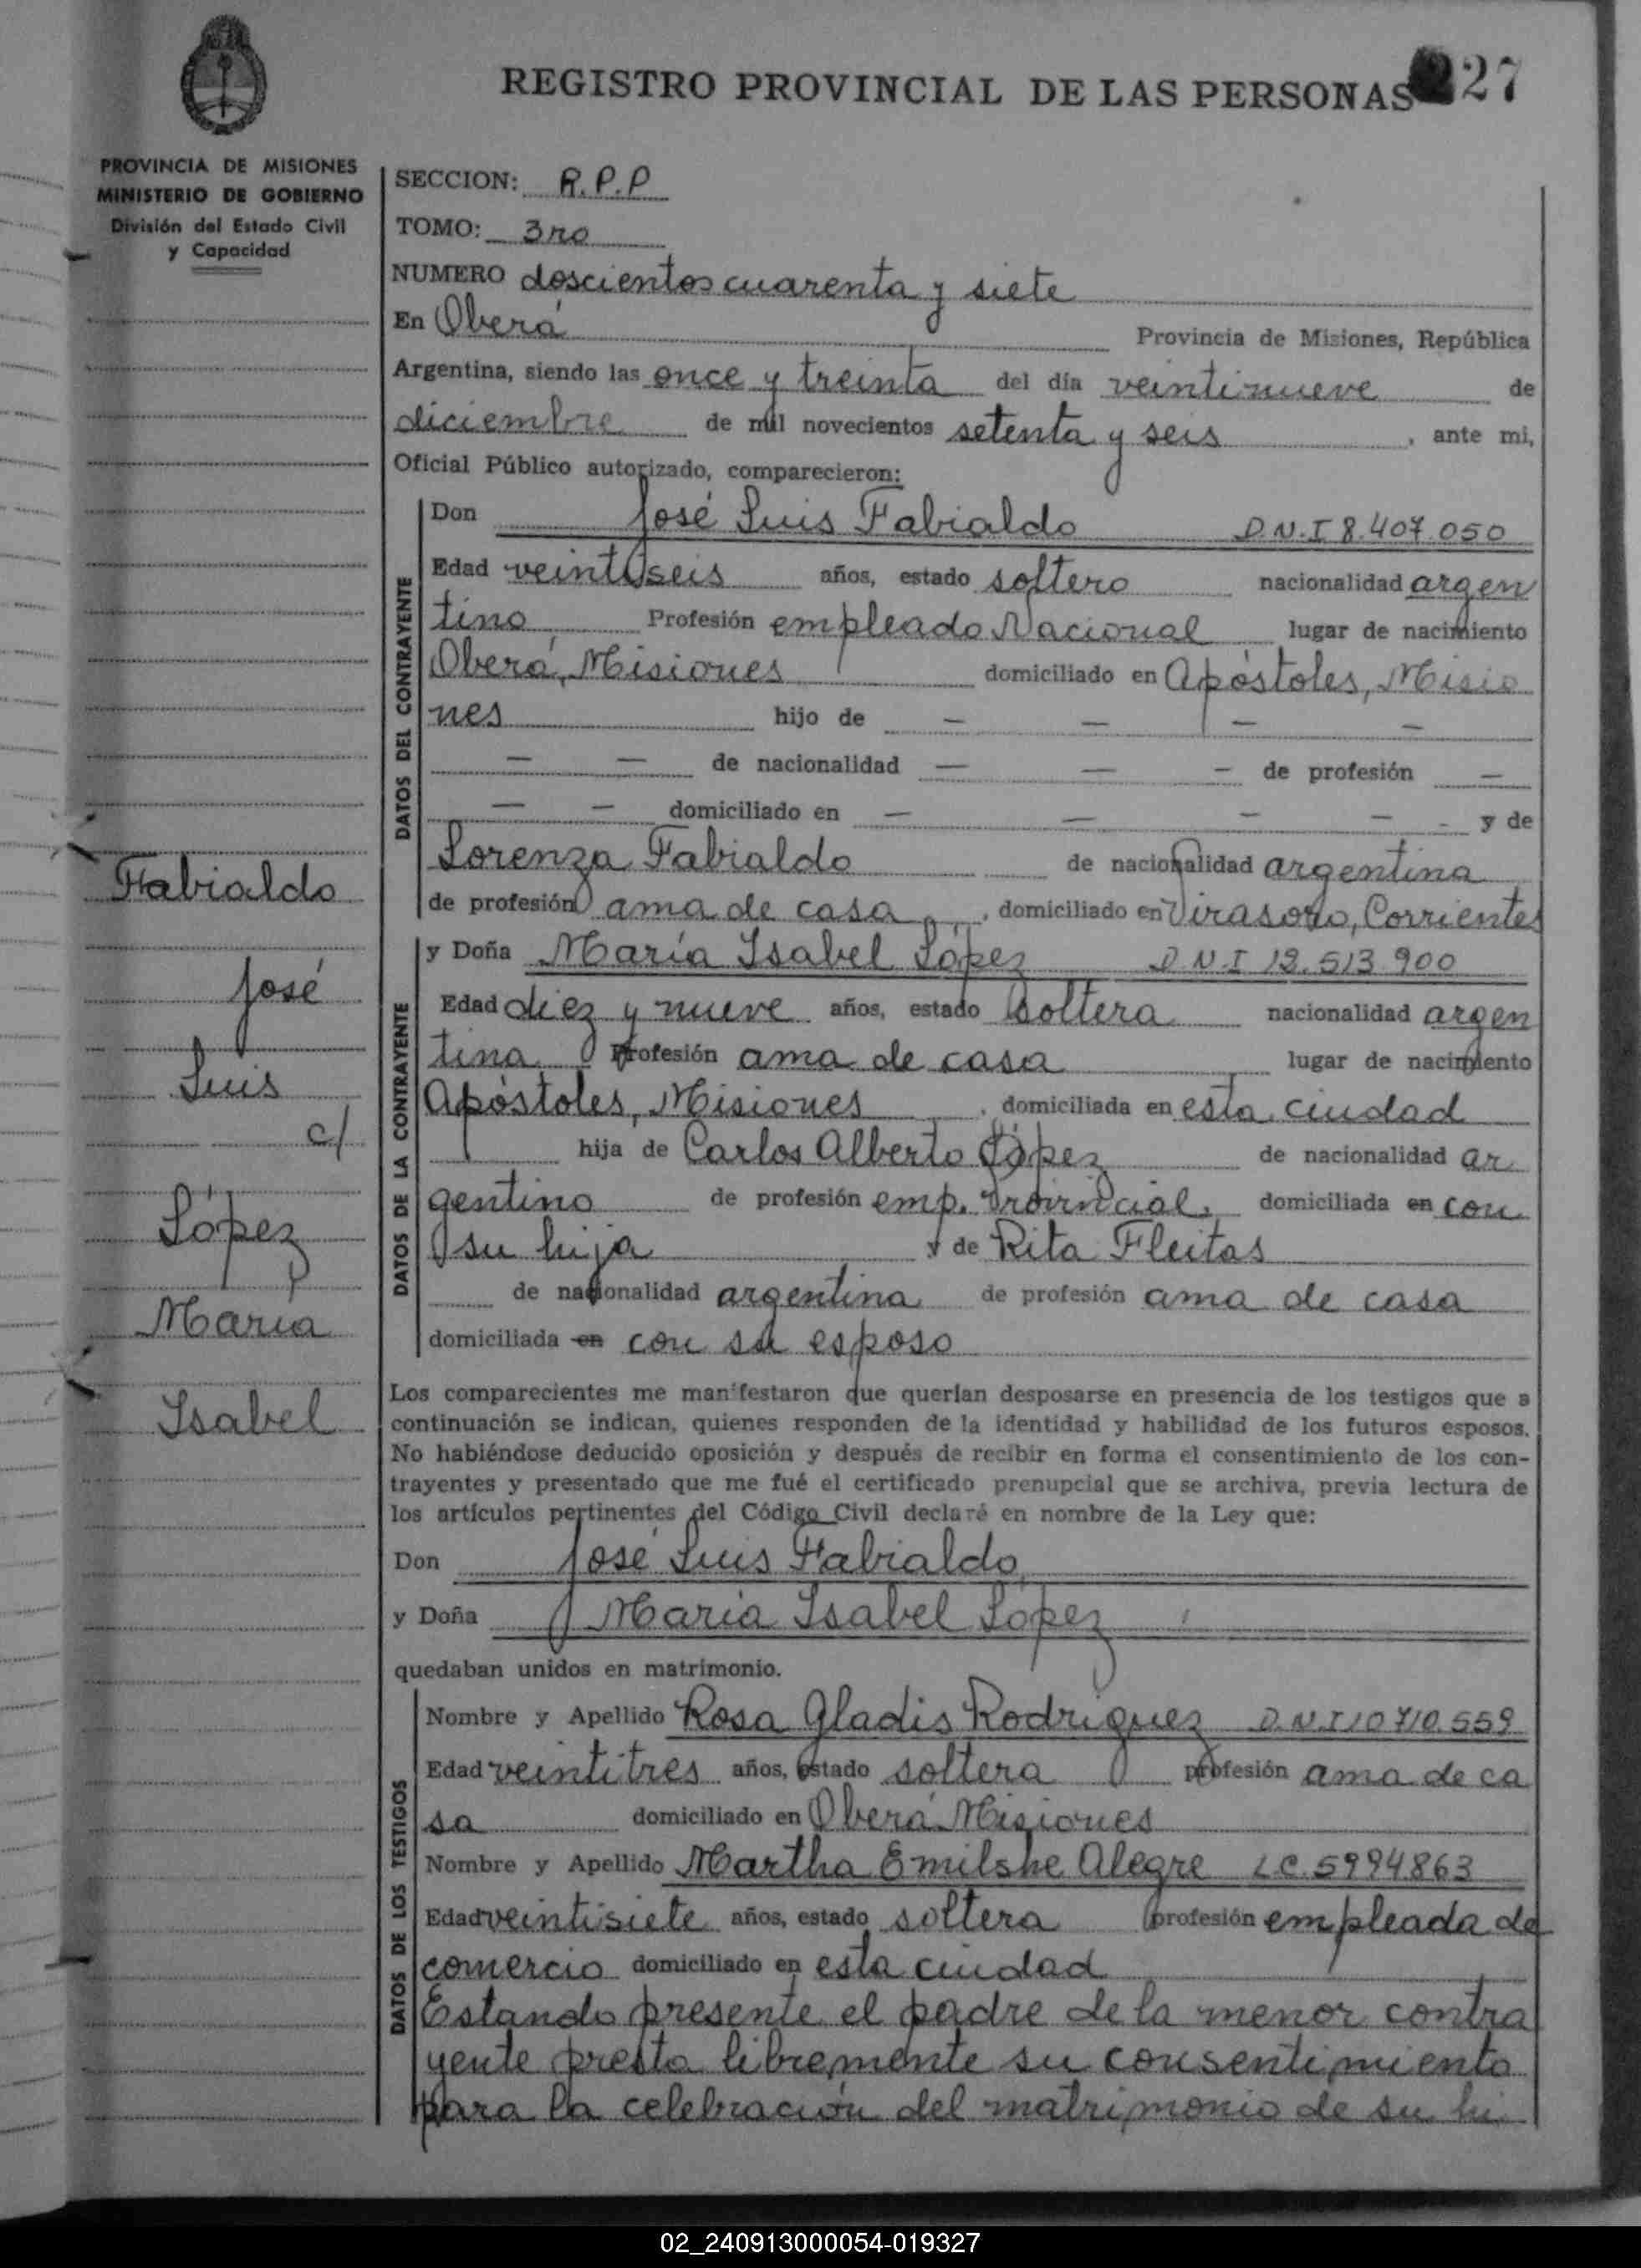 REGISTRO PROVINCIAL DE LAS PERSONAS 27
PROVINCIA DE MISIONES
MINISTERIO DE GOBIERNO
División del Estado Civil
y Capacidad
SECCION: R.P.P
TOMO: 3ro
NUMERO doscientos cuarenta y siete
En Oberá Provincia de Misiones, República
Argentina, siendo las once y treinta del día veintinueve de
diciembre de mil novecientos setenta y seis, ante mi,
Oficial Público autorizado, comparecieron:
DATOS DEL CONTRAYENTE
Don José Luis Fabialdo D.N.I 8.407.050
Edad veintiseis años, estado soltero nacionalidad argen
tino Profesión empleado Nacional lugar de nacimiento
Oberá, Misiones domiciliado en Apóstoles, Misio
nes hijo de — — — —
— — de nacionalidad — — — de profesión —
— — domiciliado en — — — — - y de
Lorenza Fabialdo de nacionalidad argentina
de profesión ama de casa, domiciliado en Virasoro, Corrientes
DATOS DE LA CONTRAYENTE
y Doña María Isabel López D.N.I 12.513.900
Edad diez y nueve años, estado soltera nacionalidad argen
tina Profesión ama de casa lugar de nacimiento
Apóstoles, Misiones, domiciliada en esta ciudad
hija de Carlos Alberto López de nacionalidad ar
gentino de profesión emp. Provincial, domiciliada en con
su hija y de Rita Fleitas
de nacionalidad argentina de profesión ama de casa
domiciliada en con su esposo
Fabialdo
José
Luis
c/
López
María
Isabel
Los comparecientes me manifestaron que querían desposarse en presencia de los testigos que a
continuación se indican, quienes responden de la identidad y habilidad de los futuros esposos.
No habiéndose deducido oposición y después de recibir en forma el consentimiento de los con-
trayentes y presentado que me fué el certificado prenupcial que se archiva, previa lectura de
los artículos pertinentes del Código Civil declaré en nombre de la Ley que:
Don José Luis Fabialdo
y Doña María Isabel López
quedaban unidos en matrimonio.
DATOS DE LOS TESTIGOS
Nombre y Apellido Rosa Gladis Rodriguez D.N.I 10.710.559
Edad veintitres años, estado soltera profesión ama de ca
sa domiciliado en Oberá Misiones
Nombre y Apellido Martha Emilshe Alegre L.C. 5994863
Edad veintisiete años, estado soltera profesión empleada de
comercio domiciliado en esta ciudad
Estando presente el padre de la menor contra
yente presta libremente su consentimiento
para la celebración del matrimonio de su hi
02_240913000054-019327